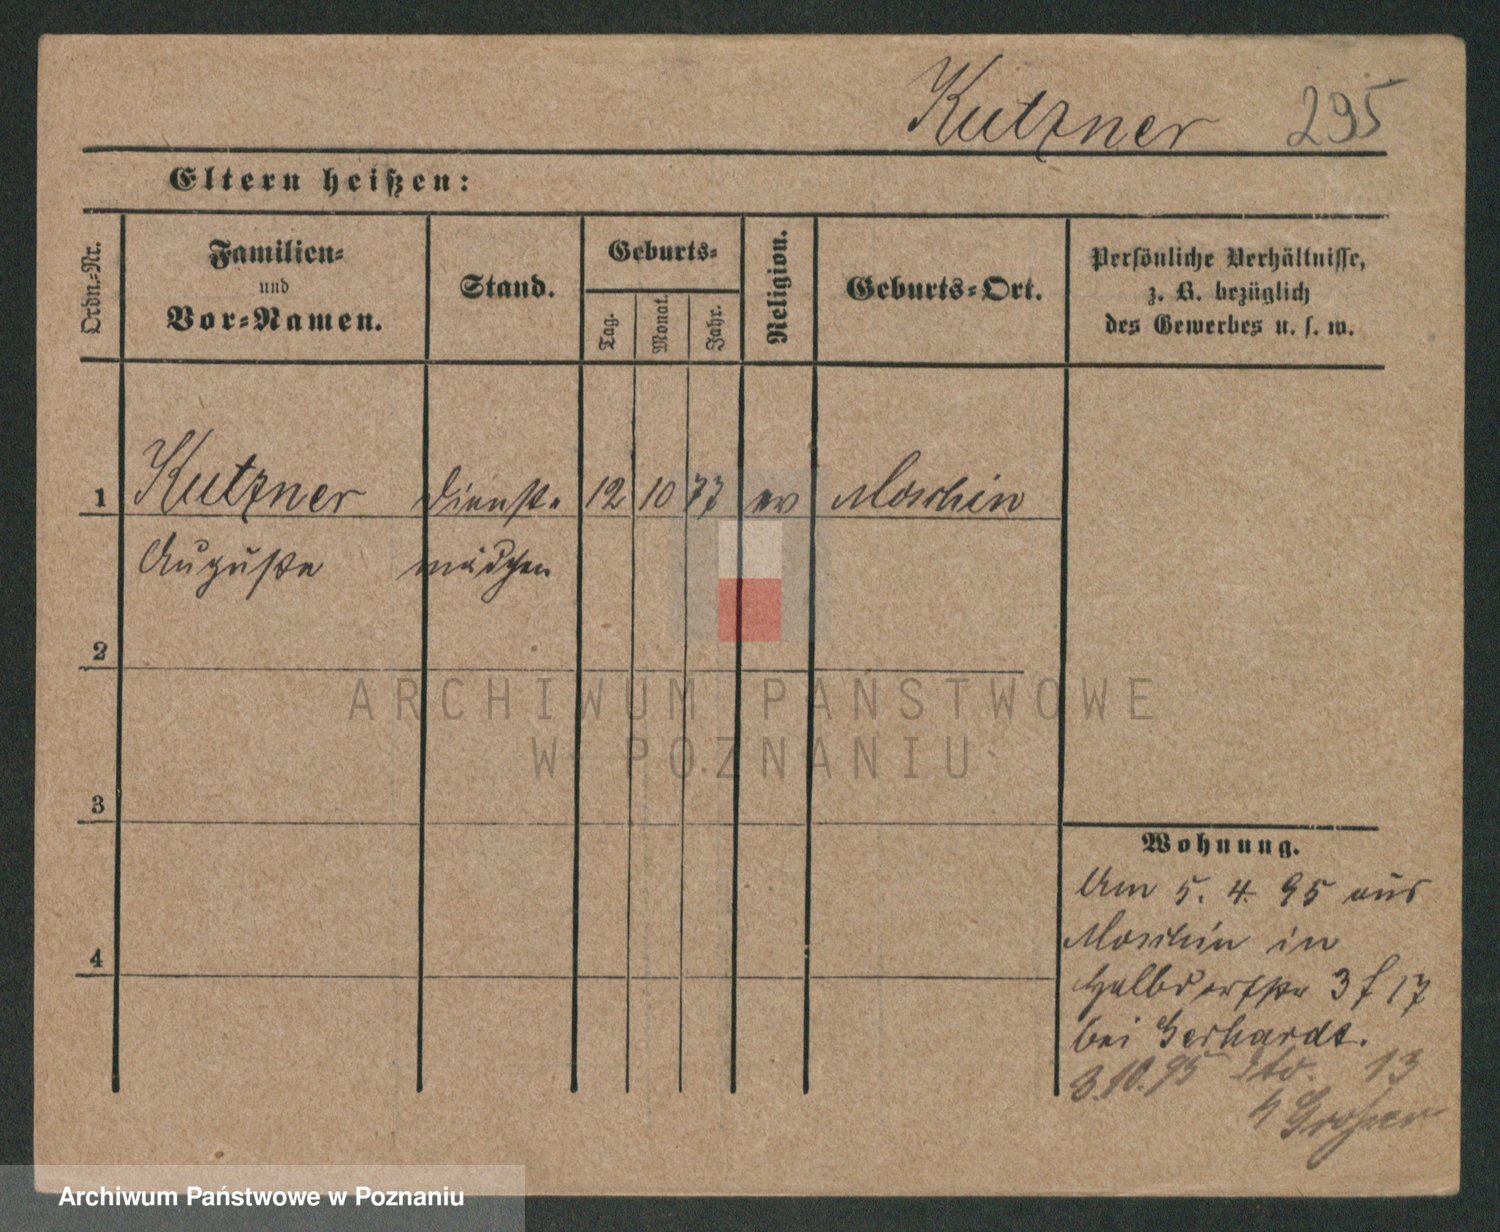 Kutzner 295
Eltern heißen:
Ordn.-Nr.
Familien-
und
Vor-Namen.
Stand.
Geburts-
Tag.
Monat.
Jahr.
Religion.
Geburts-Ort.
Persönliche Verhältnisse,
z. B. bezüglich
des Gewerbes u. s. w.
1 Kutzner Dienst- 12 10 77 ev Moschin
Auguste mädchen
2
ARCHIWUM PAŃSTWOWE
W POZNANIU
3
Wohnung.
Am 5. 4. 95 aus
Moschin in
4
Halbdorfstr 3 f 17
bei Gerhardt.
3.10.95 13
Archiwum Państwowe w Poznaniu